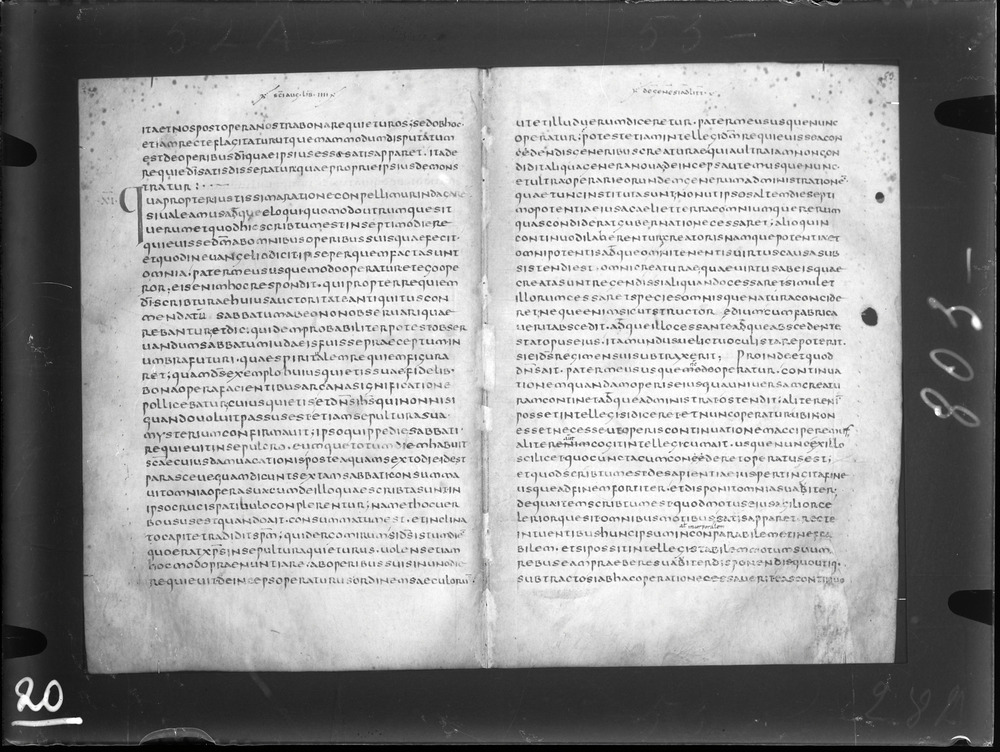 52A –
53 –
sci aug · lib · IIII
de genesi ad litt
53
ita et nos post opera nostra bona requieturos; sed ob hoc
etiam recte flagitatur ut quemammodum disputatum
est de operibus di quae ipsius esse satis apparet · ita de
requie di satis disseratur quae proprie ipsius demons
tratur :
XI · Quapropter iustissima ratione conpellimur indagare
si valeamus adque eloqui quomodo utrumque sit
verum et quod hic scribtum est in septimo die re
quievisse dm ab omnibus operibus suis quae fecit ·
et quod in evangelio dicit ipse per quem facta sunt
omnia · pater meus usque modo operatur et ego ope
ror; eis enim hoc respondit · qui propter requiem
di scribturae huius auctoritate antiquitus con
mendatū sabbatum ab eo non observari quae
rebantur; et dic; quidem probabiliter potest obser
vandum sabbatum iudaeis fuisse praeceptum in
umbra futuri · quae spiritalem requiem figura
ret; quam ds exemplo huius quietis suae fidelib ·
bona opera facientibus arcana significatione
pollicebatur; cuius quietis et dns ihs qui non nisi
quando voluit passus est etiam sepultura sua ·
mysterium confirmavit; ipso quippe die sabbati ·
requievit in sepulcro · eumque totum diem habuit
scae cuiusdam vacationis posteaquam sexto die id est
parasceue quam dicunt sextam sabbati consumma
vit omnia opera sua cum de illo quae scribta sunt in
ipso crucis patibulo conplerentur; nam et hoc ver
bo usus est quando ait · consummatum est · et inclina
to capite tradidit spm · quid ergo mirum si ds istum diē
quo erat xps in sepultura quieturus · volens etiam
hoc modo praenuntiare · ab operibus suis in uno die
requievit deinceps operaturus ordinem saeculorū
ut et illud verum diceretur · pater meus usque nunc
operatur; potest etiam intellegi dm requievisse a con
dendis generibus creaturae quia ultra iam non con
didit aliqua genera nova deinceps autem usque nunc
et ultra operari eorundem generum administrationē
quae tunc instituta sunt; non ut ipso saltem die septi
mo potentia eius a caeli et terrae omniumque rerum
quas condiderat gubernatione cessaret; alioquin
continuo dilaberentur; creatoris namque potentia et
omnipotentis adque omnitenentis virtus causa sub
sistendi est omni creaturae quae virtus ab eis quae
creata sunt regendis si aliquando cessaret simul et
illorum cessaret species omnisque natura concide
ret; neque enim sicut structor aedium cum fabrica
verit abscedit · adque illo cessante adque abscedente
stat opus eius · ita mundus vel ictu oculi stare poterit ·
si ei ds regimen suis ubtraxerit; Proinde et quod
dns ait · pater meus usque modo operatur · continua
tionem quandam operis eius qua universam creatu
ram continet adque administrat ostendit; aliter enī
posset intellegi si diceret et nunc operatur ubi non
esset necesse ut operis continuationem acciperemus
aliter enim cogit intellegi cum ait · usque nunc ex illo
scilicet quo cuncta cum conderet operatus est;
et quod scribtum est de sapientia eius pertingit a fine
usque ad finem fortiter · et disponit omnia suaviter;
de qua item scribtum est quod motus eius agilior ce
leriorque sit omnibus motibus satis apparet · recte
intuentibus hunc ipsum inconparabilem et ineffa
bilem · et si possit intellegi stabilem motum suum
rebus eam praebere suaviter disponendis quo utiq ·
subtracto si ab hac operatione cessaverit eas continuo
803 –
282
20